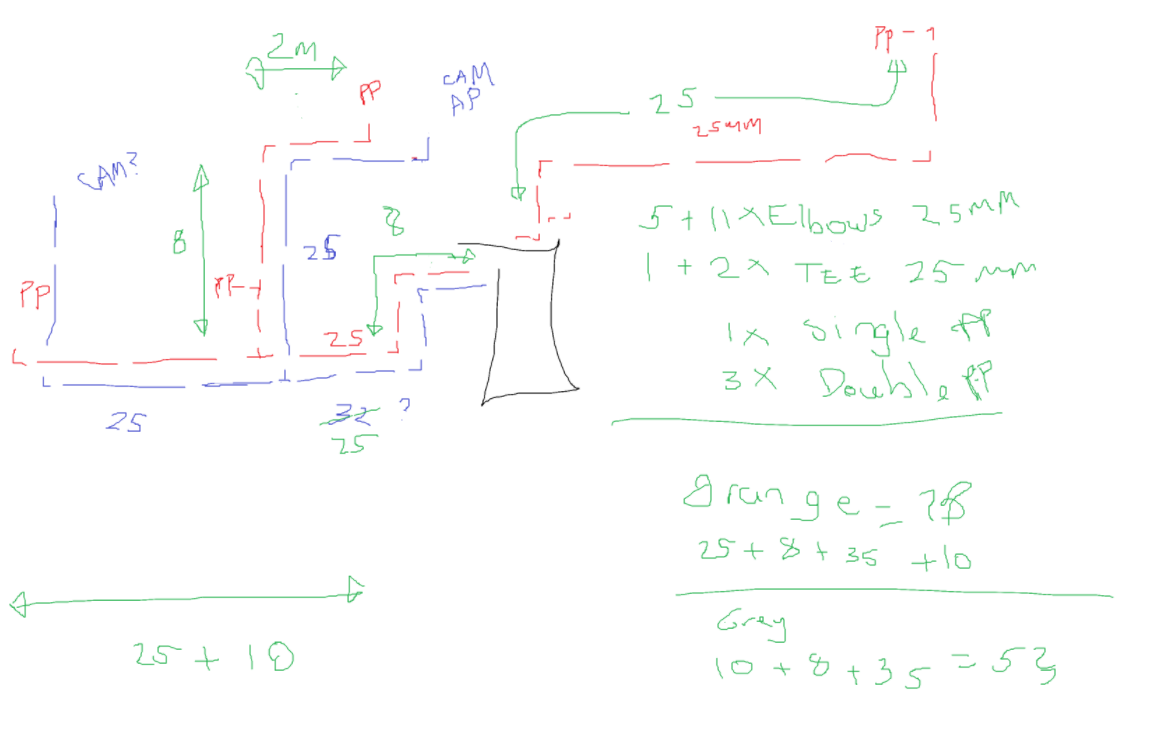 2M
PP
CAM
AP
PP-1
25
25MM
CAM?
8
8
25
5+11×Elbows 25MM
1+2× TEE 25mm
PP
PP
25
1× Single PP
3× Double PP
25
32 ?
25
Orange = 78
25+8+35 +10
Grey
25+10
10+8+35=53